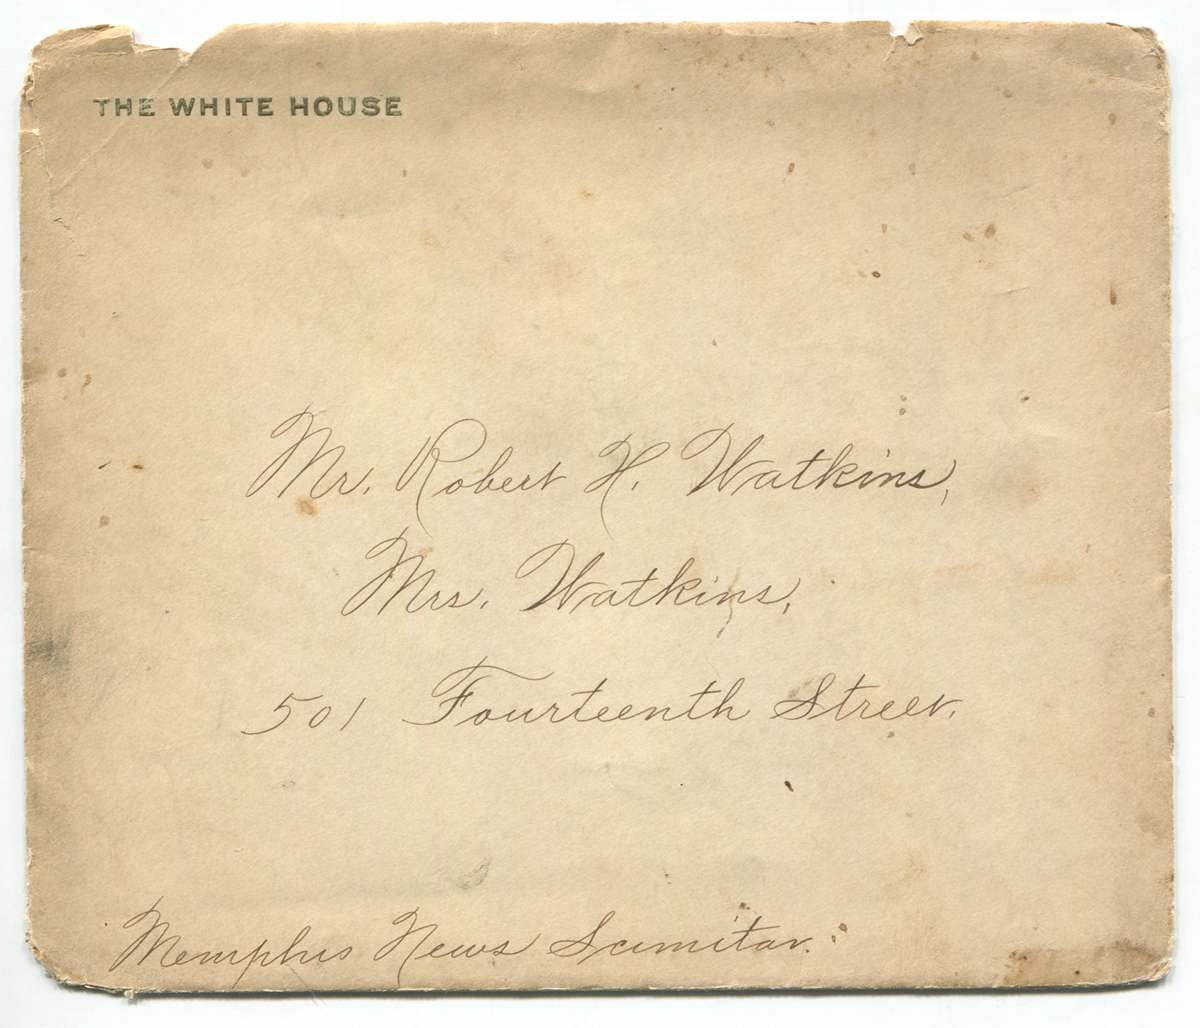 THE WHITE HOUSE
Mr. Robert H. Watkins,
Mrs. Watkins,
501 Fourteenth Street.
Memphis News Scimitar.